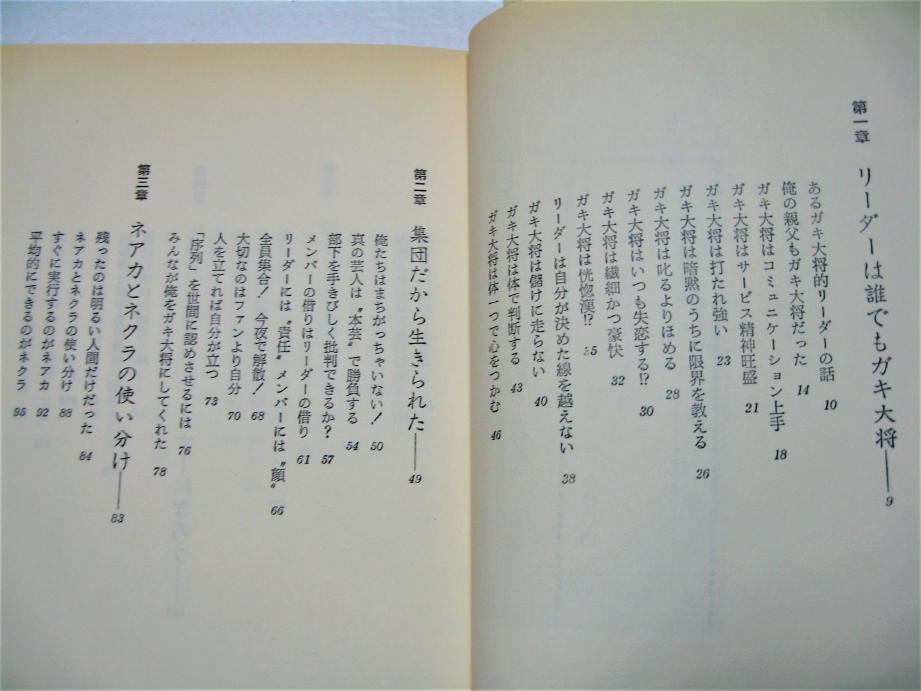 第一章 リーダーは誰でもガキ大将——9
あるガキ大将的リーダーの話 10
俺の親父もガキ大将だった 14
ガキ大将はコミュニケーション上手 18
ガキ大将はサービス精神旺盛 21
ガキ大将は打たれ強い 23
ガキ大将は暗黙のうちに限界を教える 26
ガキ大将は叱るよりほめる 28
ガキ大将はいつも失恋する!? 30
ガキ大将は繊細かつ豪快 32
ガキ大将は恍惚漢!? 35
リーダーは自分が決めた線を越えない 38
ガキ大将は儲けに走らない 40
ガキ大将は体で判断する 43
ガキ大将は体一つで心をつかむ 46
第二章 集団だから生きられた——49
俺たちはまちがっちゃいない! 50
真の芸人は〝本芸〟で勝負する 54
部下を手きびしく批判できるか? 57
メンバーの借りはリーダーの借り 61
リーダーには〝責任〟メンバーには〝顔〟 66
全員集合! 今夜で解散! 68
大切なのはファンより自分 70
人を立てれば自分が立つ 73
「序列」を世間に認めさせるには 76
みんなが俺をガキ大将にしてくれた 78
第三章 ネアカとネクラの使い分け——83
残ったのは明るい人間だけだった 84
ネアカとネクラの使い分け 88
すぐに実行するのがネアカ 92
平均的にできるのがネクラ 95